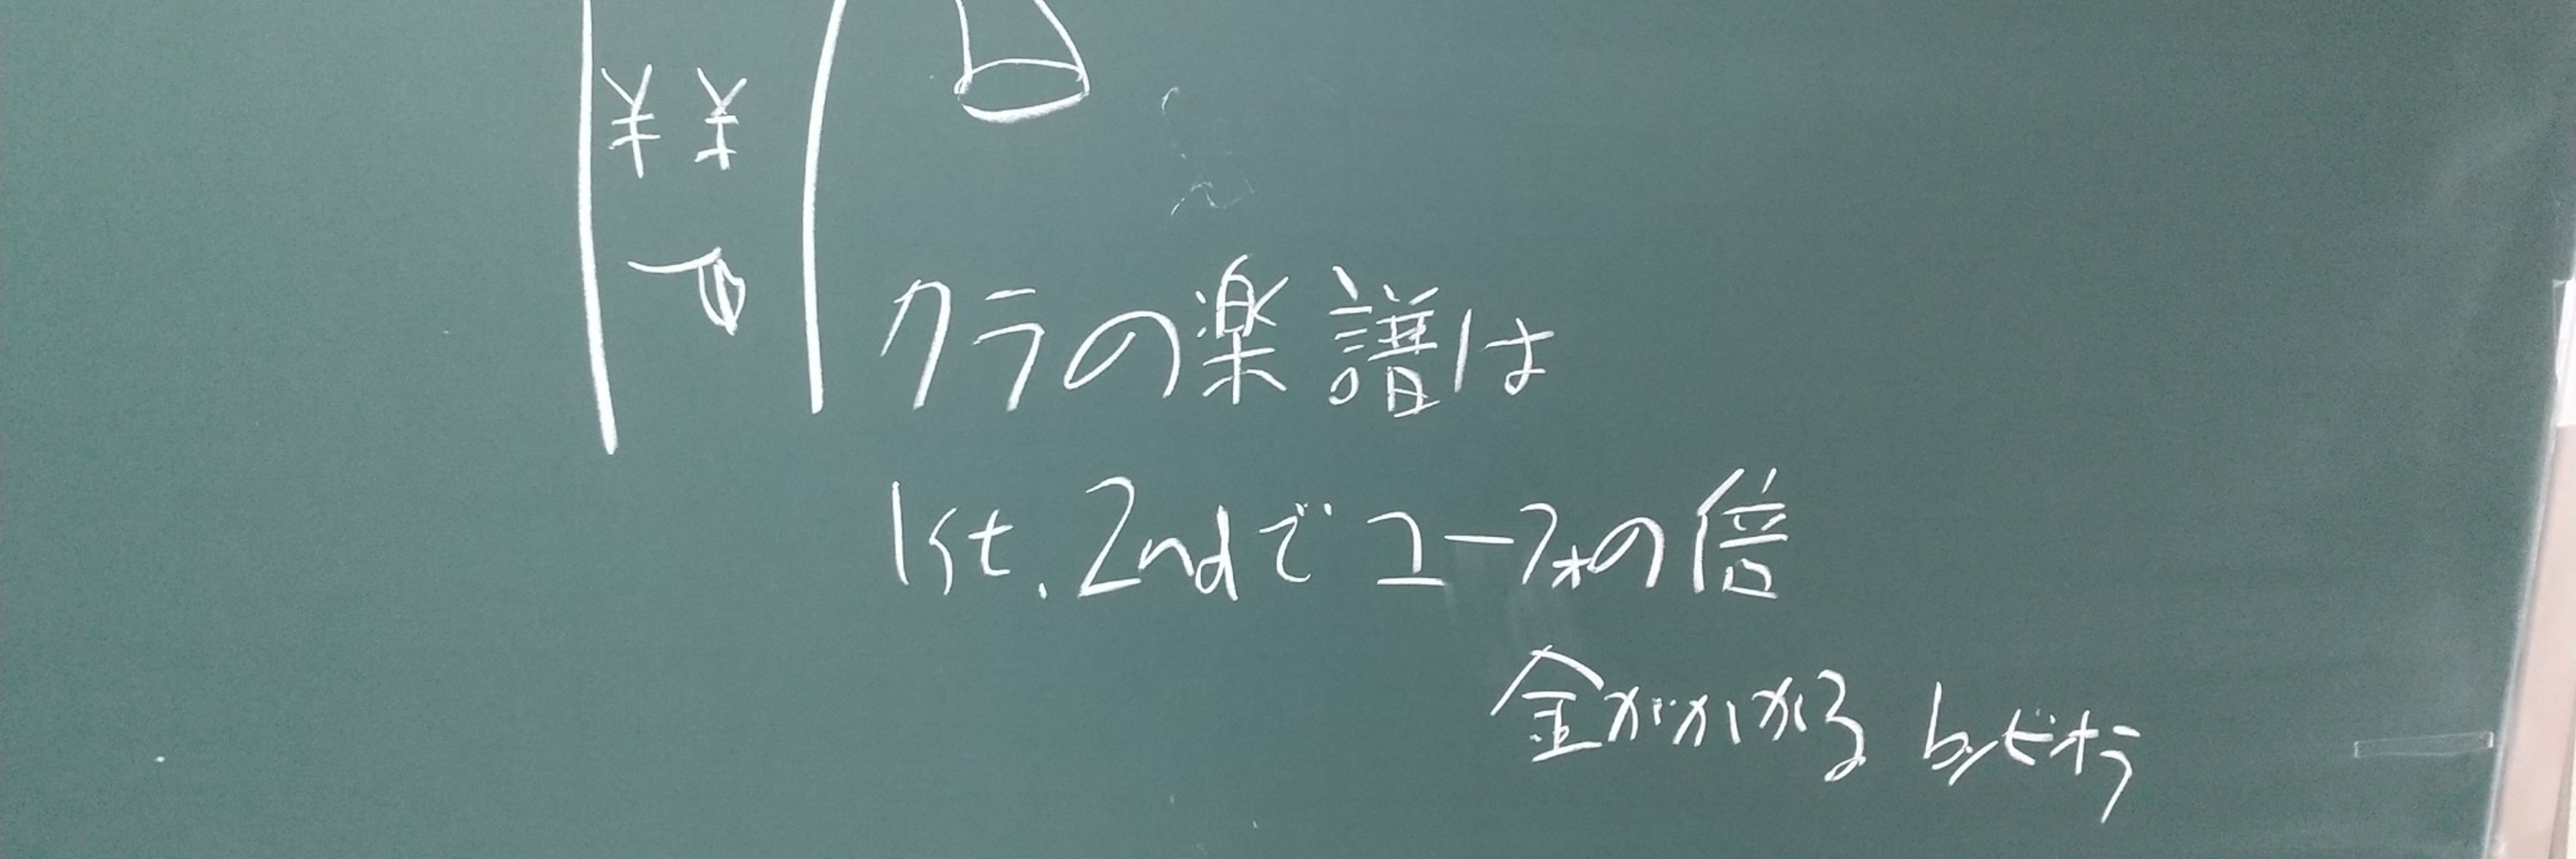 ¥ ¥
クラの楽譜は
1st. 2ndでユーフォの倍
金がかかる byビオラ